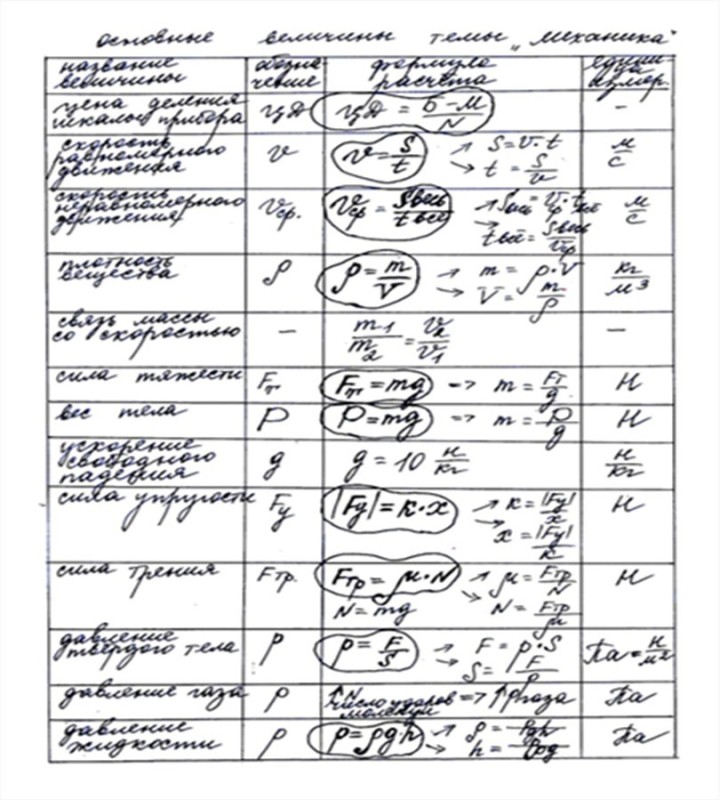 основные величины темы „механика“
название величины | обозна-чение | формула расчёта | едини-ца измер.
цена деления шкалы прибора | ЦД | ЦД = Б-М/N | -
скорость равномерного движения | v | v = S/t → S=v·t → t = S/v | м/с
скорость неравномерного движения | Vср. | Vср = Sвесь/tвсё → Sвесь = Vср·tвсё → tвсё = Sвесь/Vср | м/с
плотность вещества | ρ | ρ = m/V → m = ρ·V → V = m/ρ | кг/м³
связь массы со скоростью | - | m1/m2 = V2/V1 | -
сила тяжести | Fт | Fт = mg → m = Fт/g | Н
вес тела | P | P = mg → m = P/g | Н
ускорение свободного падения | g | g = 10 Н/кг | Н/кг
сила упругости | Fу | |Fу| = к·х → к = |Fу|/х → х = |Fу|/к | Н
сила трения | Fтр. | Fтр = μ·N → μ = Fтр/N → N = Fтр/μ | Н
N = mg
давление твёрдого тела | p | p = F/S → F = p·S → S = F/p | Па = Н/м²
давление газа | p | ↑N число ударов молекул => ↑p газа | Па
давление жидкости | p | p = ρgh → ρ = → h = | Па